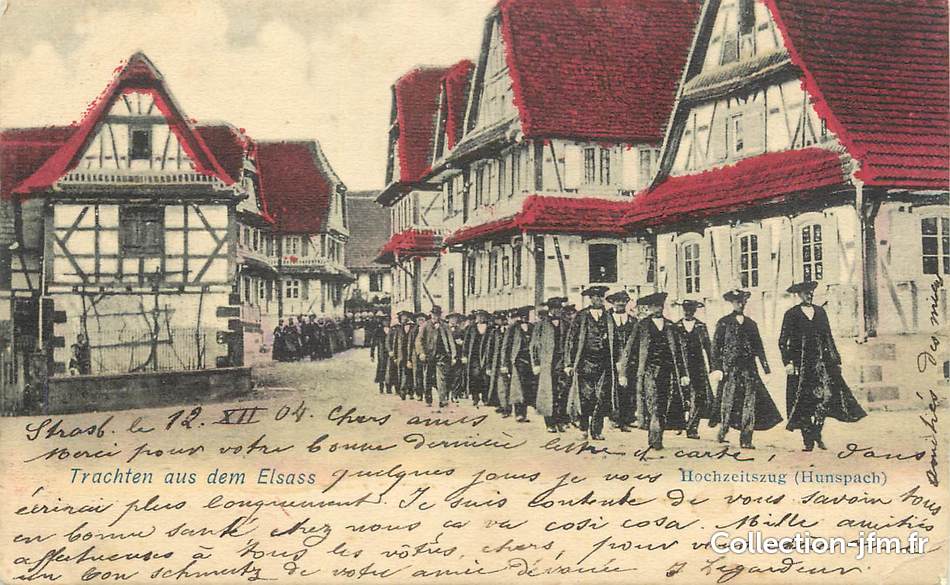 Strasb. le 12. XII 04. Chers amis
Merci pour votre bonne dernière lettre et carte, dans
Trachten aus dem Elsass
quelques jours je vous
Hochzeitszug (Hunspach)
écrirai plus longuement. Je suis contente de vous savoir tous
en bonne santé, chez nous ça va cosi cosa. Mille amitiés
affectueuses à tous les vôtres, chers, pour vous
un bon schmutz de votre amie dévouée
amitiés des miens
Collection-jfm.fr